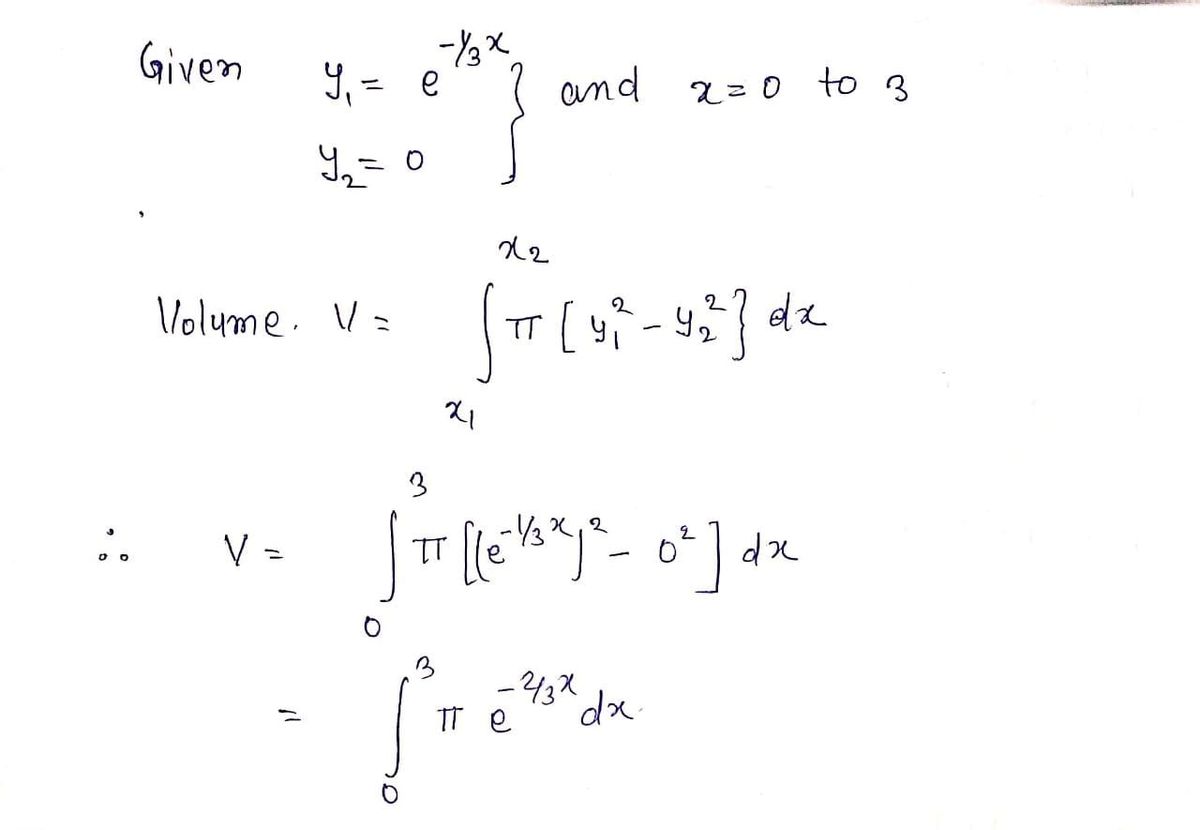 Given y₁ = e^(-1/3 x) } and x = 0 to 3
y₂ = 0
Volume. V = ∫_(x₁)^(x₂) π [ y₁² - y₂² } dx
∴ V = ∫_0^3 π [(e^(-1/3 x))² - 0² ] dx
= ∫_0^3 π e^(-2/3 x) dx.